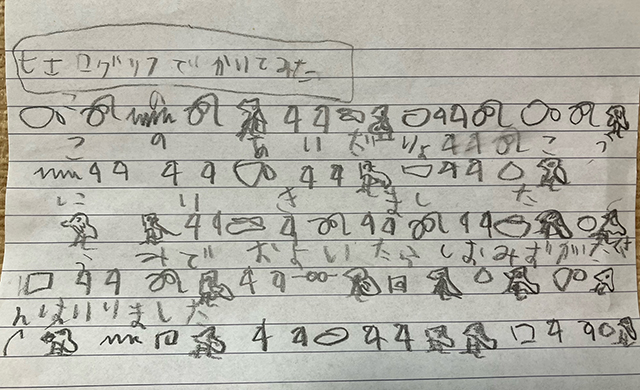 ヒエログリフでかいてみた
このあいだりょこう
にいきました
そこでおよいだらしおみずが
んはいりました